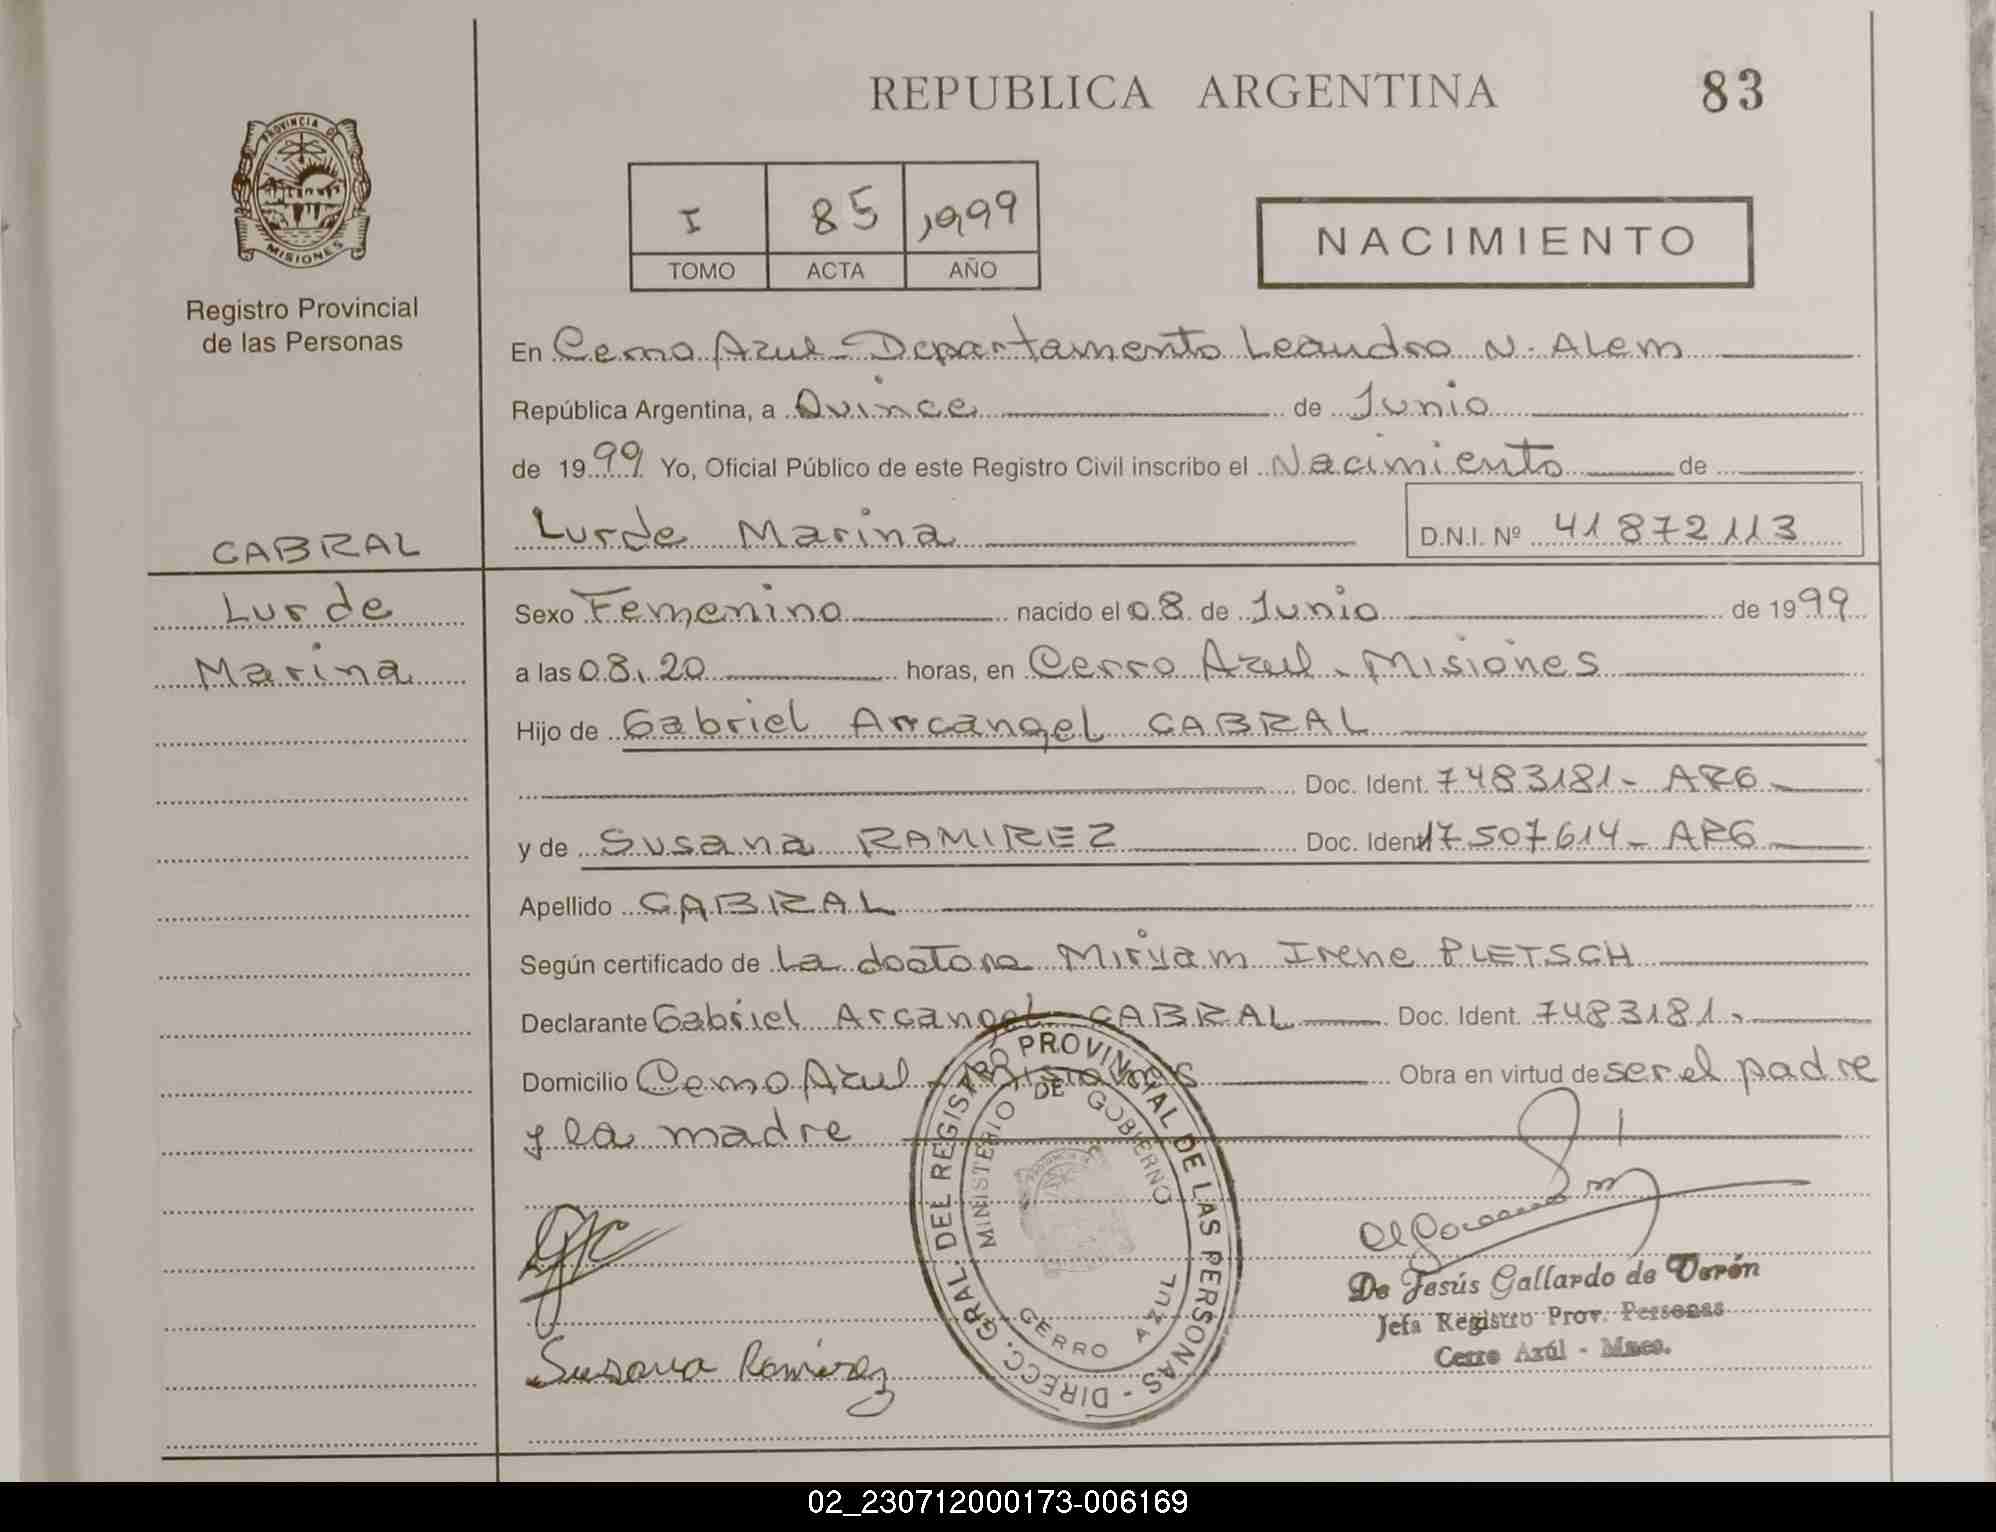 REPUBLICA ARGENTINA 83
PROVINCIA DE
MISIONES
Registro Provincial
de las Personas
I 85 1999
TOMO ACTA AÑO
NACIMIENTO
En Cerro Azul - Departamento Leandro N. Alem
República Argentina, a Quince de Junio
de 1999 Yo, Oficial Público de este Registro Civil inscribo el Nacimiento de
CABRAL
Lurde Marina D.N.I. Nº 41872113
Lurde
Marina
Sexo Femenino nacido el 08 de Junio de 1999
a las 08,20 horas, en Cerro Azul - Misiones
Hijo de Gabriel Arcangel CABRAL
Doc. Ident. 7483181- ARG
y de Susana RAMIREZ Doc. Ident 17507614- ARG
Apellido CABRAL
Según certificado de la doctora Miryam Irene PLETSCH
Declarante Gabriel Arcangel CABRAL Doc. Ident. 7483181
Domicilio Cerro Azul - Misiones Obra en virtud de ser el padre
y la madre
DIRECC. GRAL. DEL REGISTRO PROVINCIAL DE LAS PERSONAS -
MINISTERIO DE GOBIERNO
CERRO AZUL
De Jesús Gallardo de Verón
Jefa Registro Prov. Personas
Cerro Azúl - Mnes.
Susana Ramirez
02_230712000173-006169